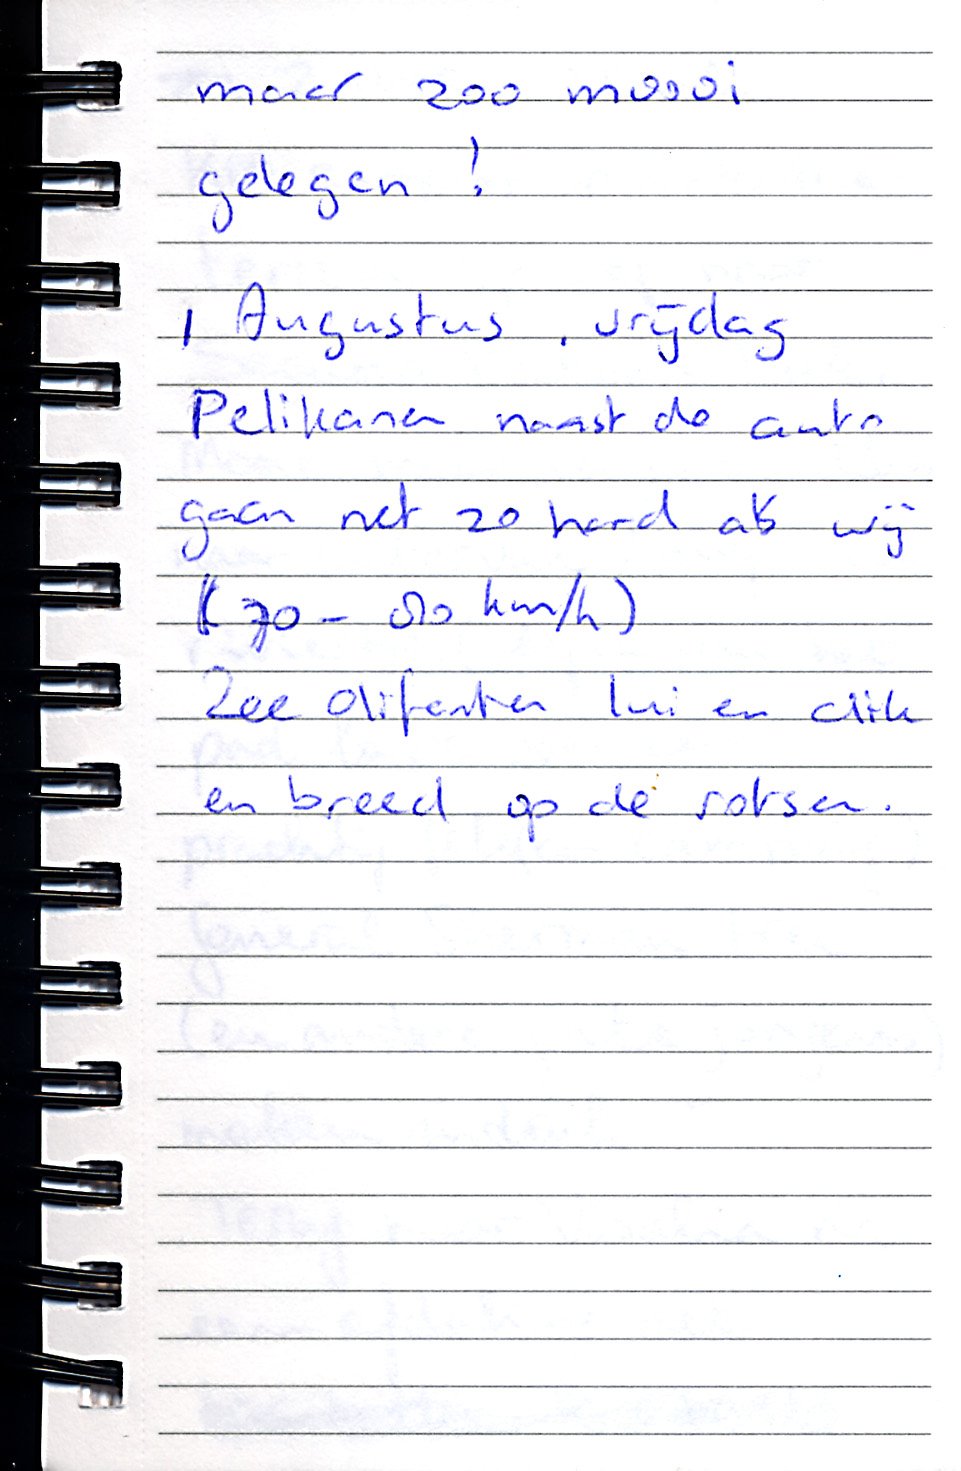 maar zoo moooi
gelegen !
1 Augustus, vrijdag
Pelikanen naast de auto
gaan net zo hard als wij
(70 - 80 km/h)
Zee olifanten lui en dik
en breed op de rotsen.